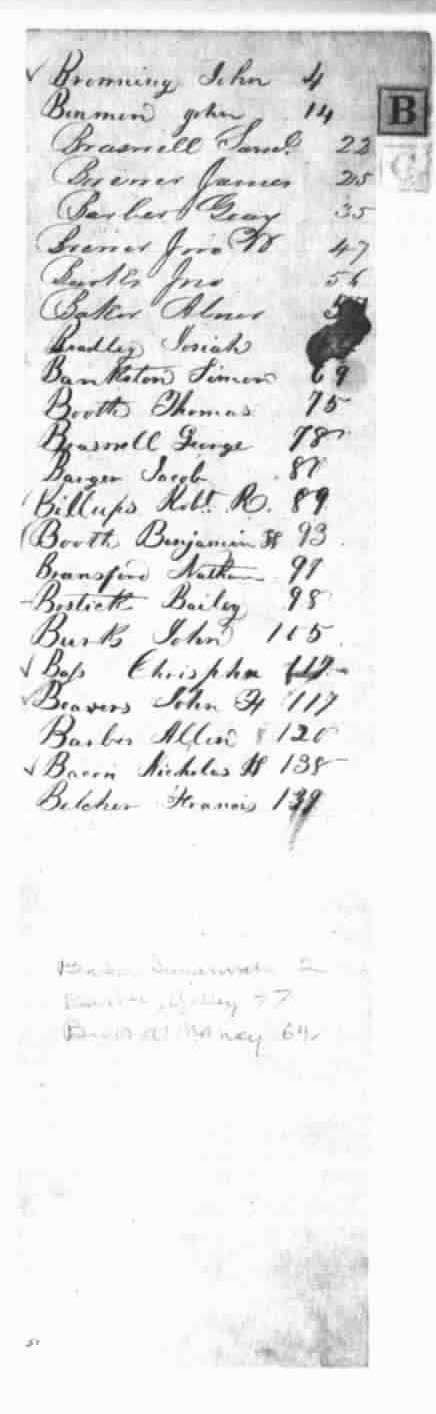 Browning John 4
B
Binmon John 14
C
Braswell Saml. 22
Brewer James 25
Barber Gray 35
Brewer Jno W 47
Burks Jno 56
Baker Abner
Bradley Josiah
Bankston Simon 69
Booth Thomas 75
Braswell George 78
Barger Jacob 87
Billups Robt. R. 89
Booth Benjamin H 93
Bransford Nathan 97
Bostick Bailey 98
Burks John 115
Bass Chrisphn
Beavers John F 117
Barber Allen 120
Bacon Nicholas H 138
Belcher Francis 139
2
77
Nancy 64